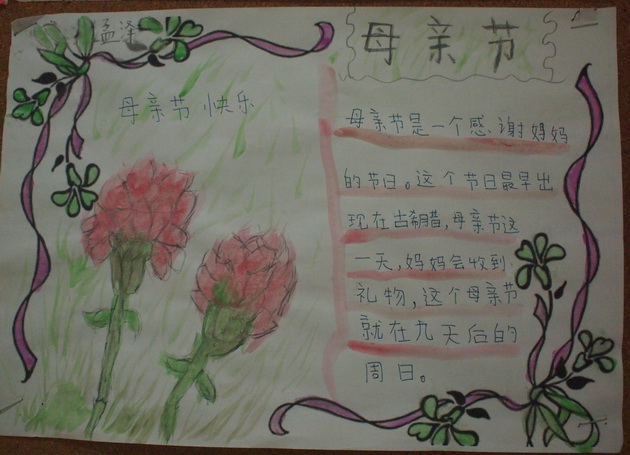 孟泽
母亲节
母亲节快乐
母亲节是一个感谢妈妈
的节日。这个节日最早出
现在古希腊,母亲节这
一天,妈妈会收到
礼物,这个母亲节
就在九天后的
周日。